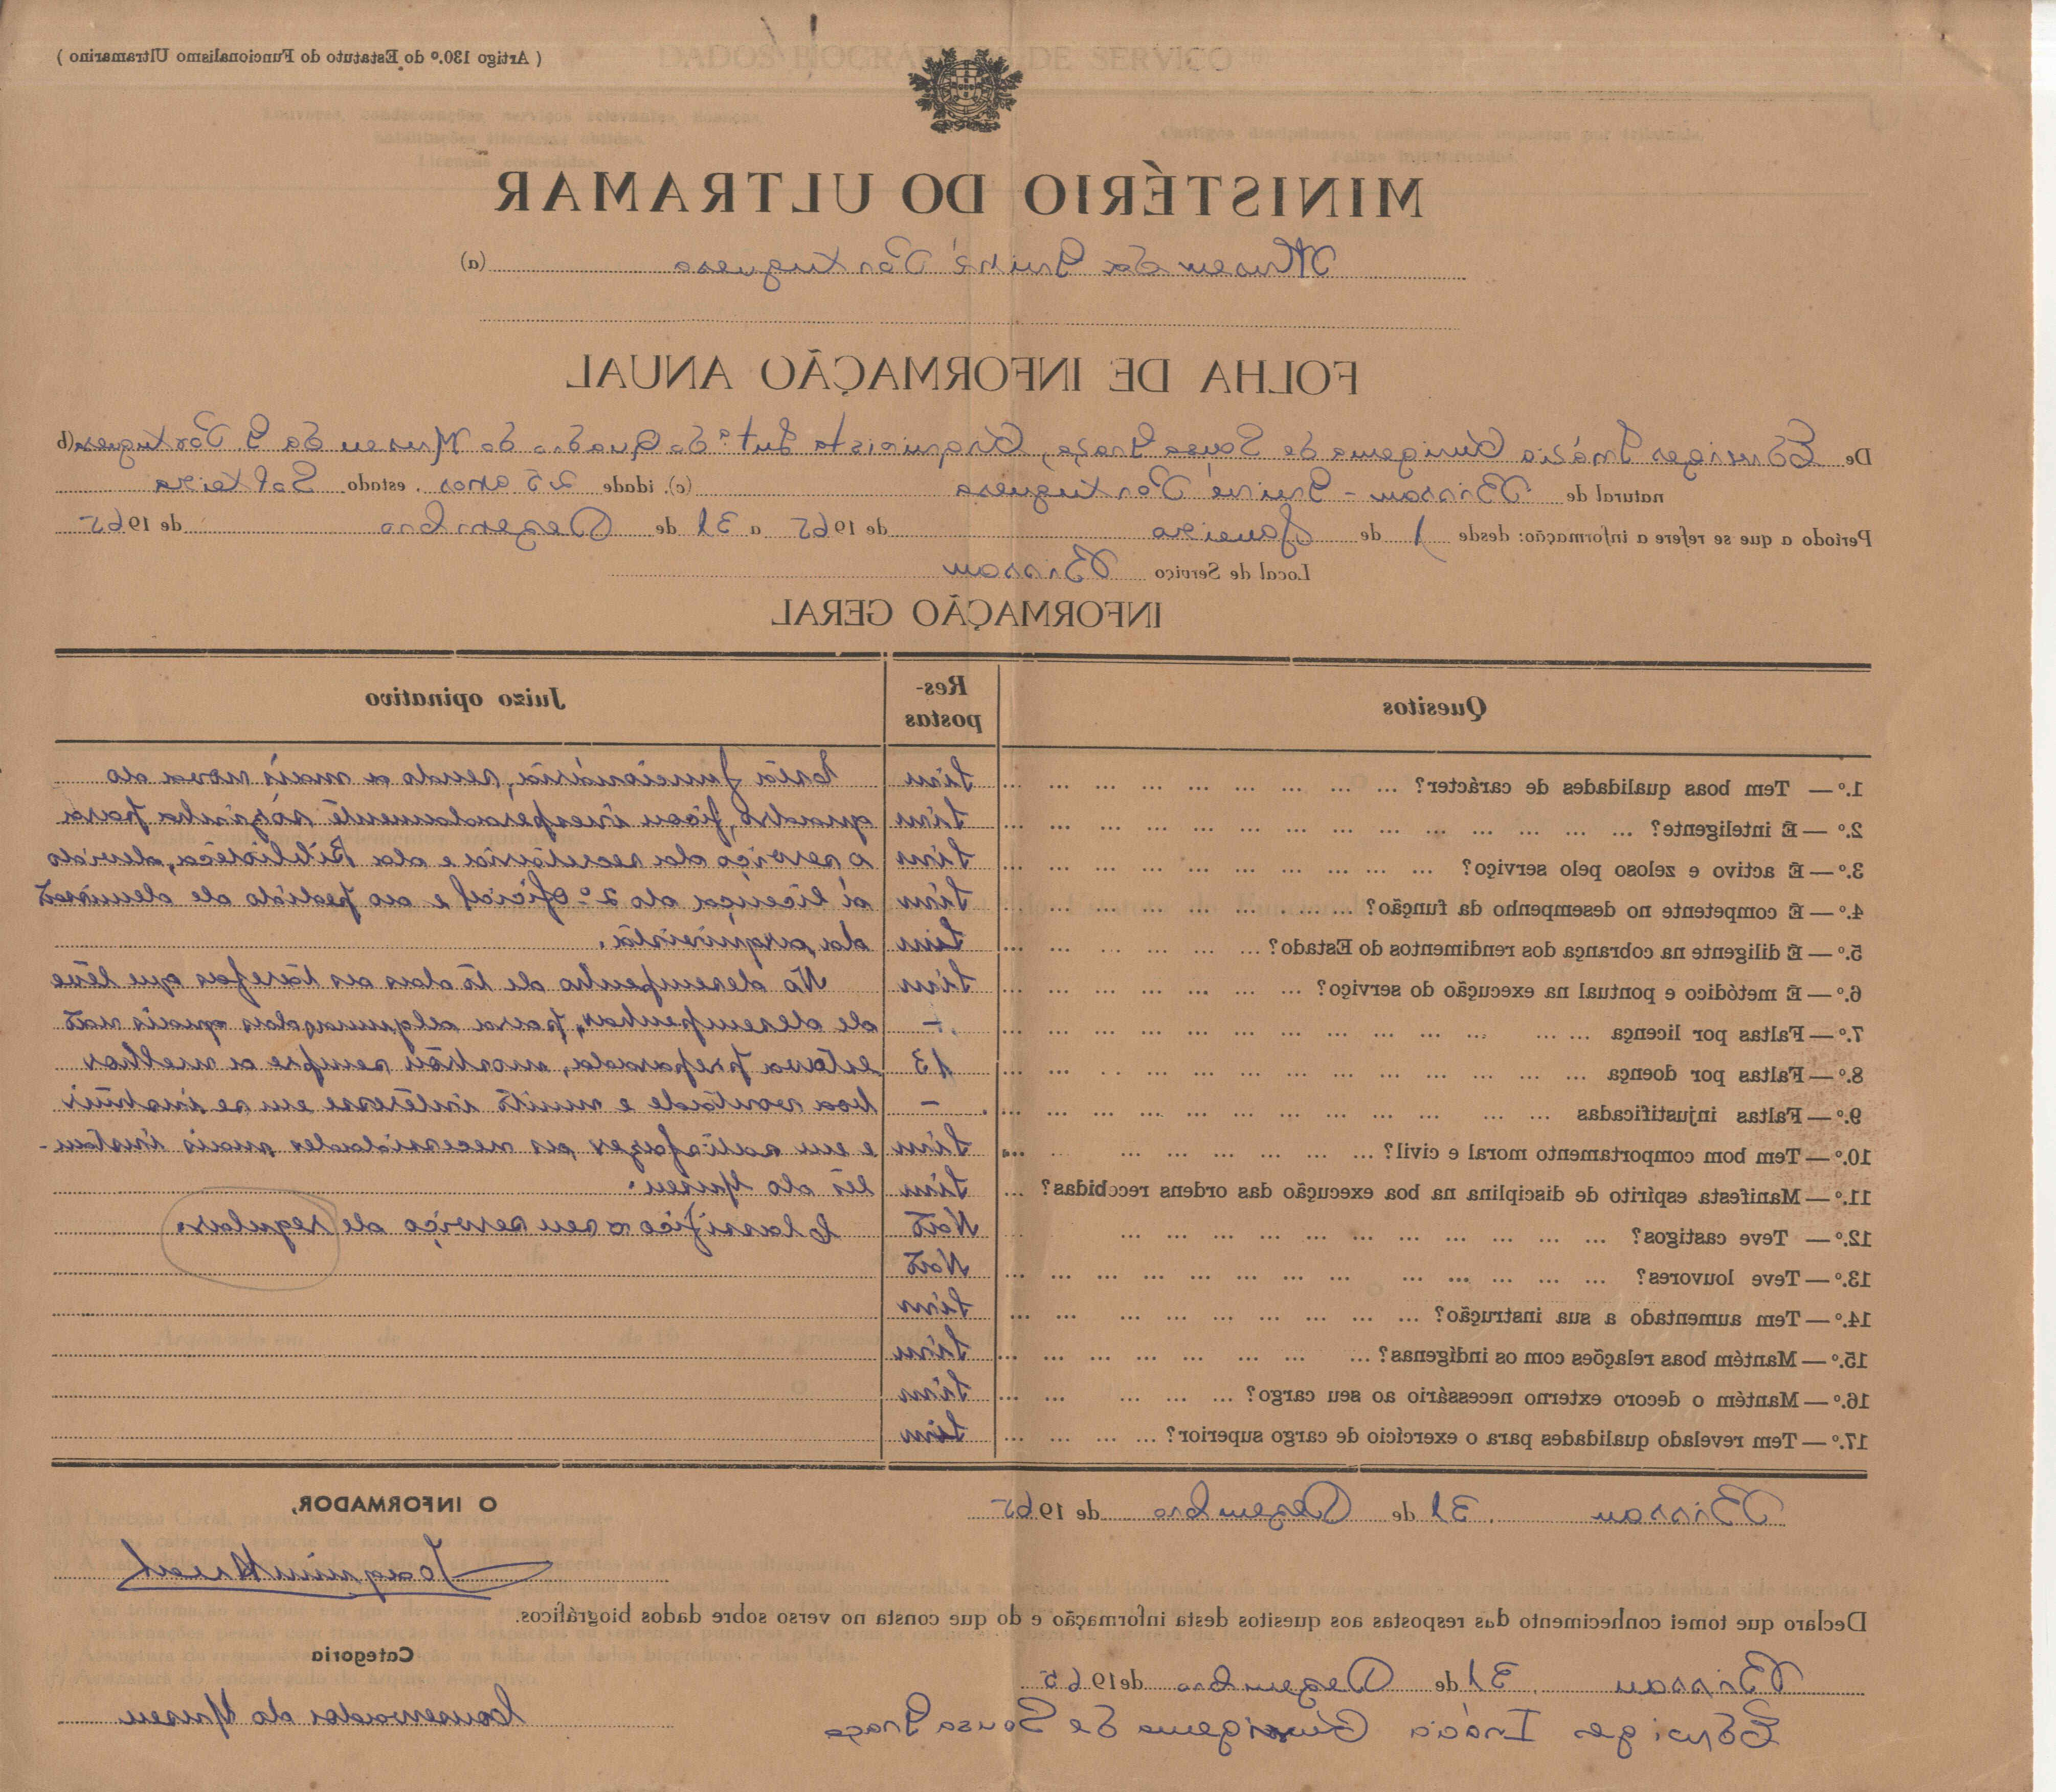 ( Artigo 130.º do Estatuto do Funcionalismo Ultramarino )
DADOS BIOGRÁFICOS DE SERVIÇO
MINISTÉRIO DO ULTRAMAR
Museu da Guiné Portuguesa (a)
FOLHA DE INFORMAÇÃO ANUAL
De Edwiges Inácia de Sousa Graça, Arquivista Int.ª do Quadro do Museu da G Portuguesa (b)
natural de Bissau - Guiné Portuguesa (c), idade 25 anos, estado Solteira
Período a que se refere a informação: desde 1 de Janeiro de 1965 a 31 de Dezembro de 1965
Local de Serviço Bissau
INFORMAÇÃO GERAL
Quesitos Res-postas Juízo opinativo
1.º — Tem boas qualidades de carácter? ... Sim Esta funcionária, sendo a mais nova do
2.º — É inteligente? ... Sim quadro, ficou inesperadamente sòzinha para
3.º — É activo e zeloso pelo serviço? ... Sim o serviço da secretaria e da Biblioteca, devido
4.º — É competente no desempenho da função? ... Sim à licença do 2.º oficial e ao pedido de demissão
5.º — É diligente na cobrança dos rendimentos do Estado? ... Sim da arquivista.
6.º — É metódico e pontual na execução do serviço? ... Sim No desempenho de tôdas as tarefas que teve
7.º — Faltas por licença ... - de desempenhar, para algumas das quais não
8.º — Faltas por doença ... 13 estava preparada, mostrou sempre a melhor
9.º — Faltas injustificadas ... - boa vontade e muito interêsse em se instruir
10.º — Tem bom comportamento moral e civil? ... Sim e em satisfazer as necessidades mais instan-
11.º — Manifesta espírito de disciplina na boa execução das ordens recebidas? ... Sim tes do Museu.
12.º — Teve castigos? ... Não Classifico o seu serviço de regular.
13.º — Teve louvores? ... Não
14.º — Tem aumentado a sua instrução? ... Sim
15.º — Mantém boas relações com os indígenas? ... Sim
16.º — Mantém o decoro externo necessário ao seu cargo? ... Sim
17.º — Tem revelado qualidades para o exercício de cargo superior? ... Sim
Bissau, 31 de Dezembro de 1965
O INFORMADOR,
Declaro que tomei conhecimento das respostas aos quesitos desta informação e do que consta no verso sobre dados biográficos.
Categoria
Bissau, 31 de Dezembro de 1965
Conservador do Museu
Inácia de Sousa Graça